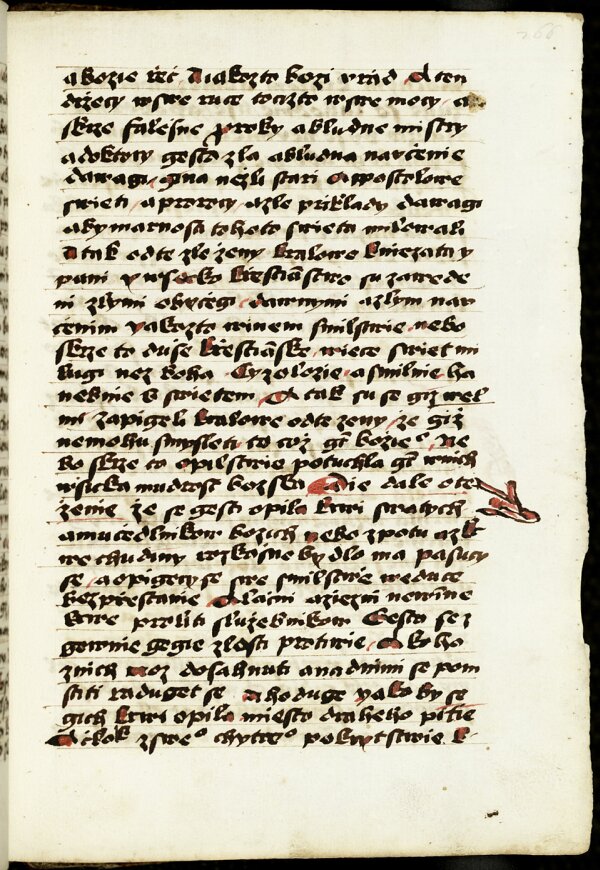 a bozie reć. A iakozto bozi vrad. A ten
držecy wswe ruce tocizto wswe mocy. a
skrze falesne proroky abludne mistry
adoktory gesto zla abludna naučenie
dawagi. gina nežli stari Apostolowe
swieti. aprorocy azle přiklady dawagi
aby marnosti tohoto swieta milowali
A tak odte zle ženy kralowe kniezata y
pani y wsecko krestianstwo su zawede
ni zlymi obyčegi. dawnymi azlym nau
čenim yakozto winem smilstwie. nebo
skrze to duše krestianske. wiece swiet mi
lugi nez boha. Cyzolozie. asmilnie ho
nebnie s swietem. A tak su se giz wel
mi zapigeli kralowe odte zeny. že giž
nemohu smysleti to což gest bozieho. Ne
bo skrze to opilstwie potuchla gest wnich
wsicka mudrost bozska Die dale ote
ženie. že se gest opila krwi swatych
amučedlnikow bozich nebo zpotu azkr
we chudiny rozkosne bydlo ma pasucy
se. aopigecy se swe smilstwie weduce
bezprestanie. A lačni aziezni newinne
krwe proliti služebnikow Gesto se z
gewnie gegie zlosti protiwie. A koho
znich moz dosahnuti anadnimi se pom
stiti raduget se. A hoduge yako by se
gich krwi opila miesto draheho pitie
Ačkolk zswe chytre pokrytstwie k